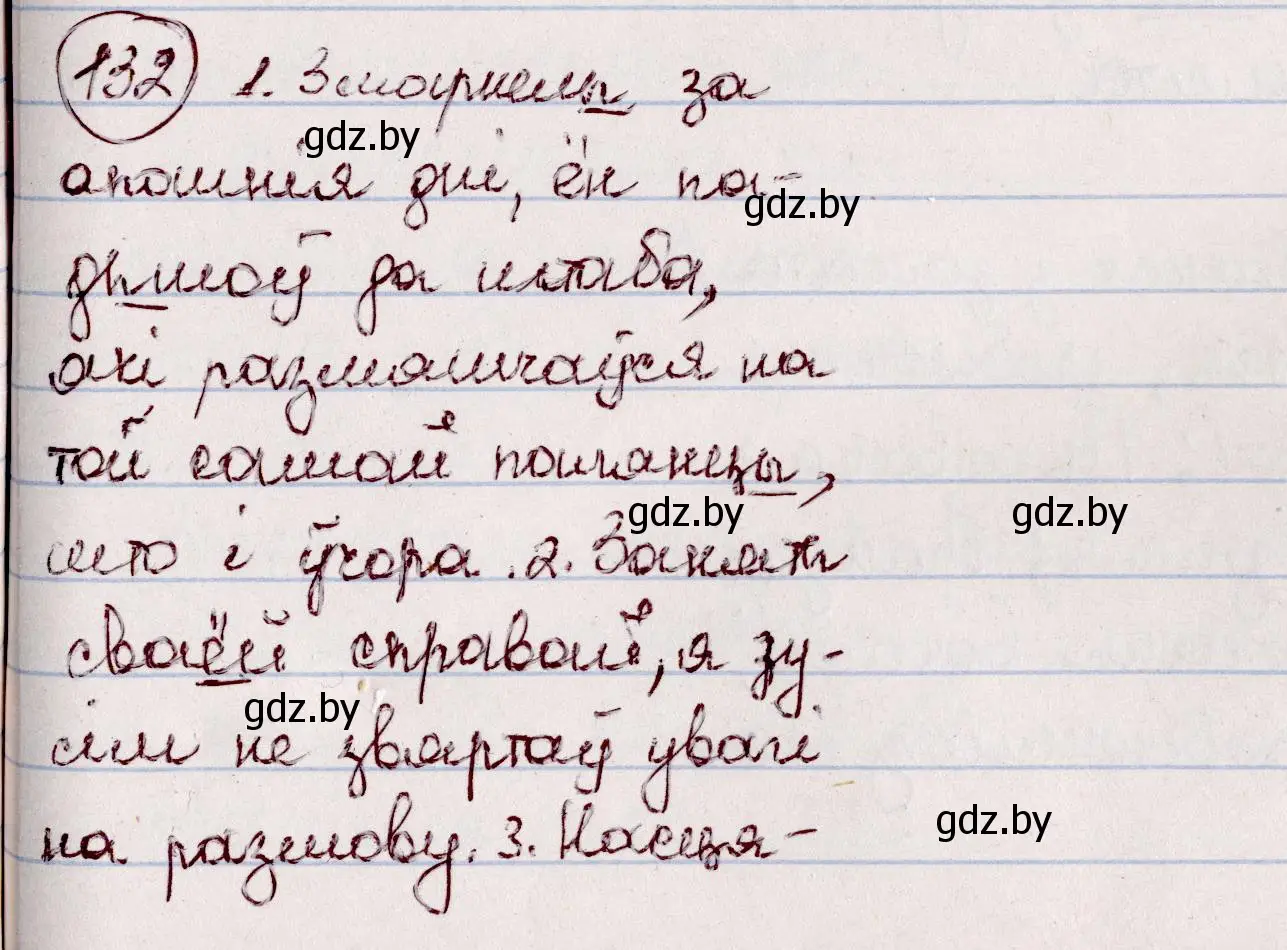 132 1. Змарнелы за
апошнія дні, ён па-
дышоў да штаба,
які размяшчаўся на
той самай палянцы,
што і ўчора. 2. Заняты
сваёй справай, я зу-
сім не звяртаў увагі
на размову. 3. Насця-
gdz.by
gdz.by
gdz.by
gdz.by
gdz.by
gdz.by